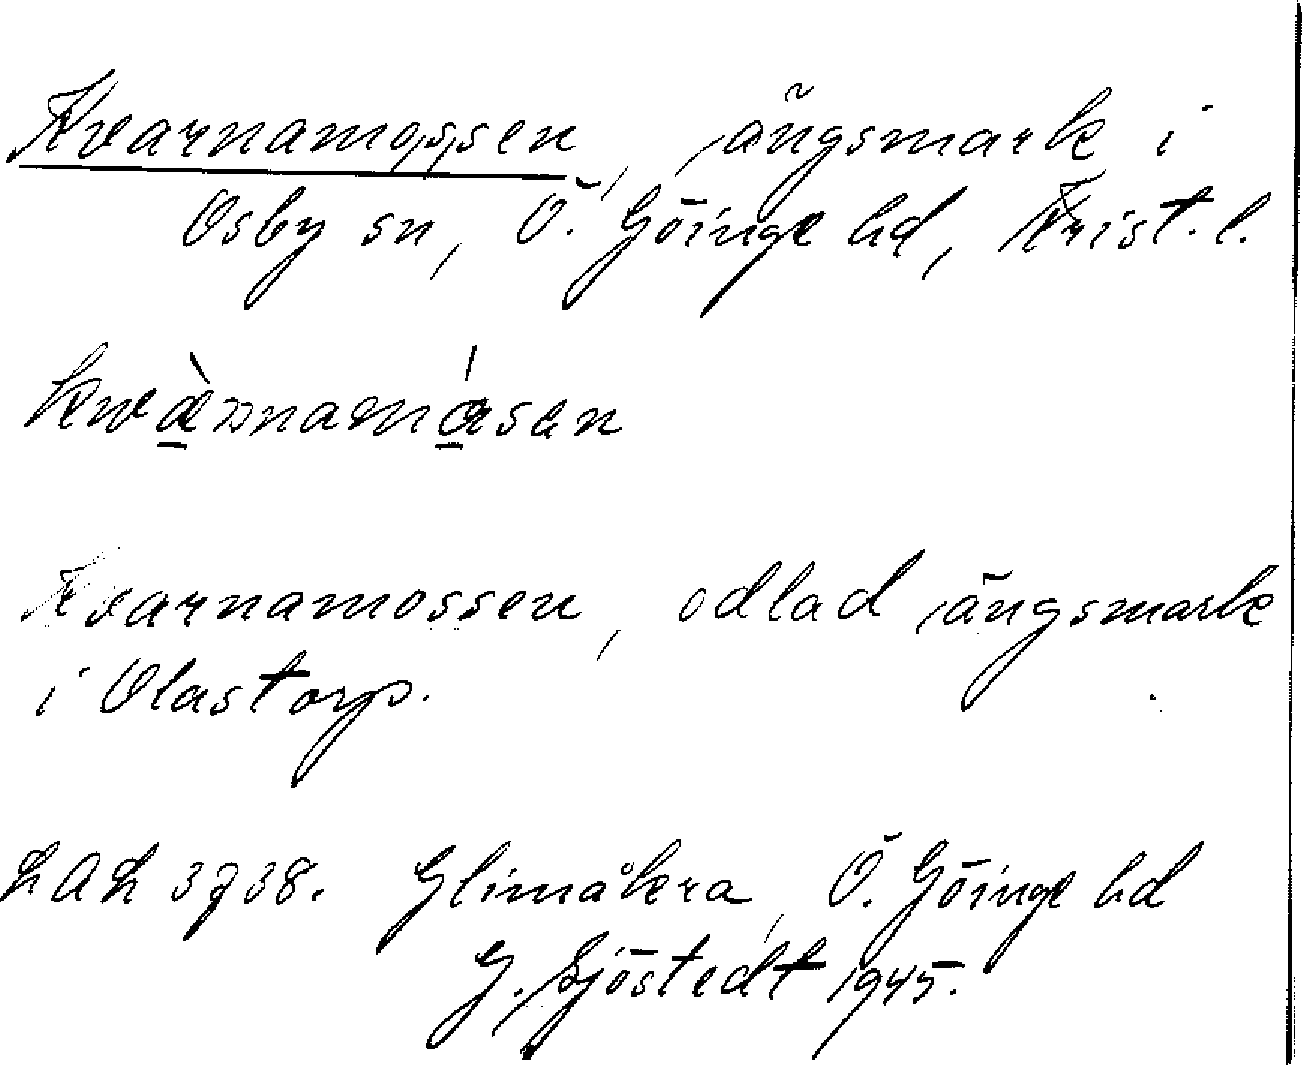 Kvarnamossen, ängsmark i
Osby sn, Ö. Göinge hd, Krist. l.
Kvarnamossen, odlad ängsmark
i Olastorp.
LAL 3738. Glimåkra, Ö. Göinge hd
G. Sjöstedt 1945.